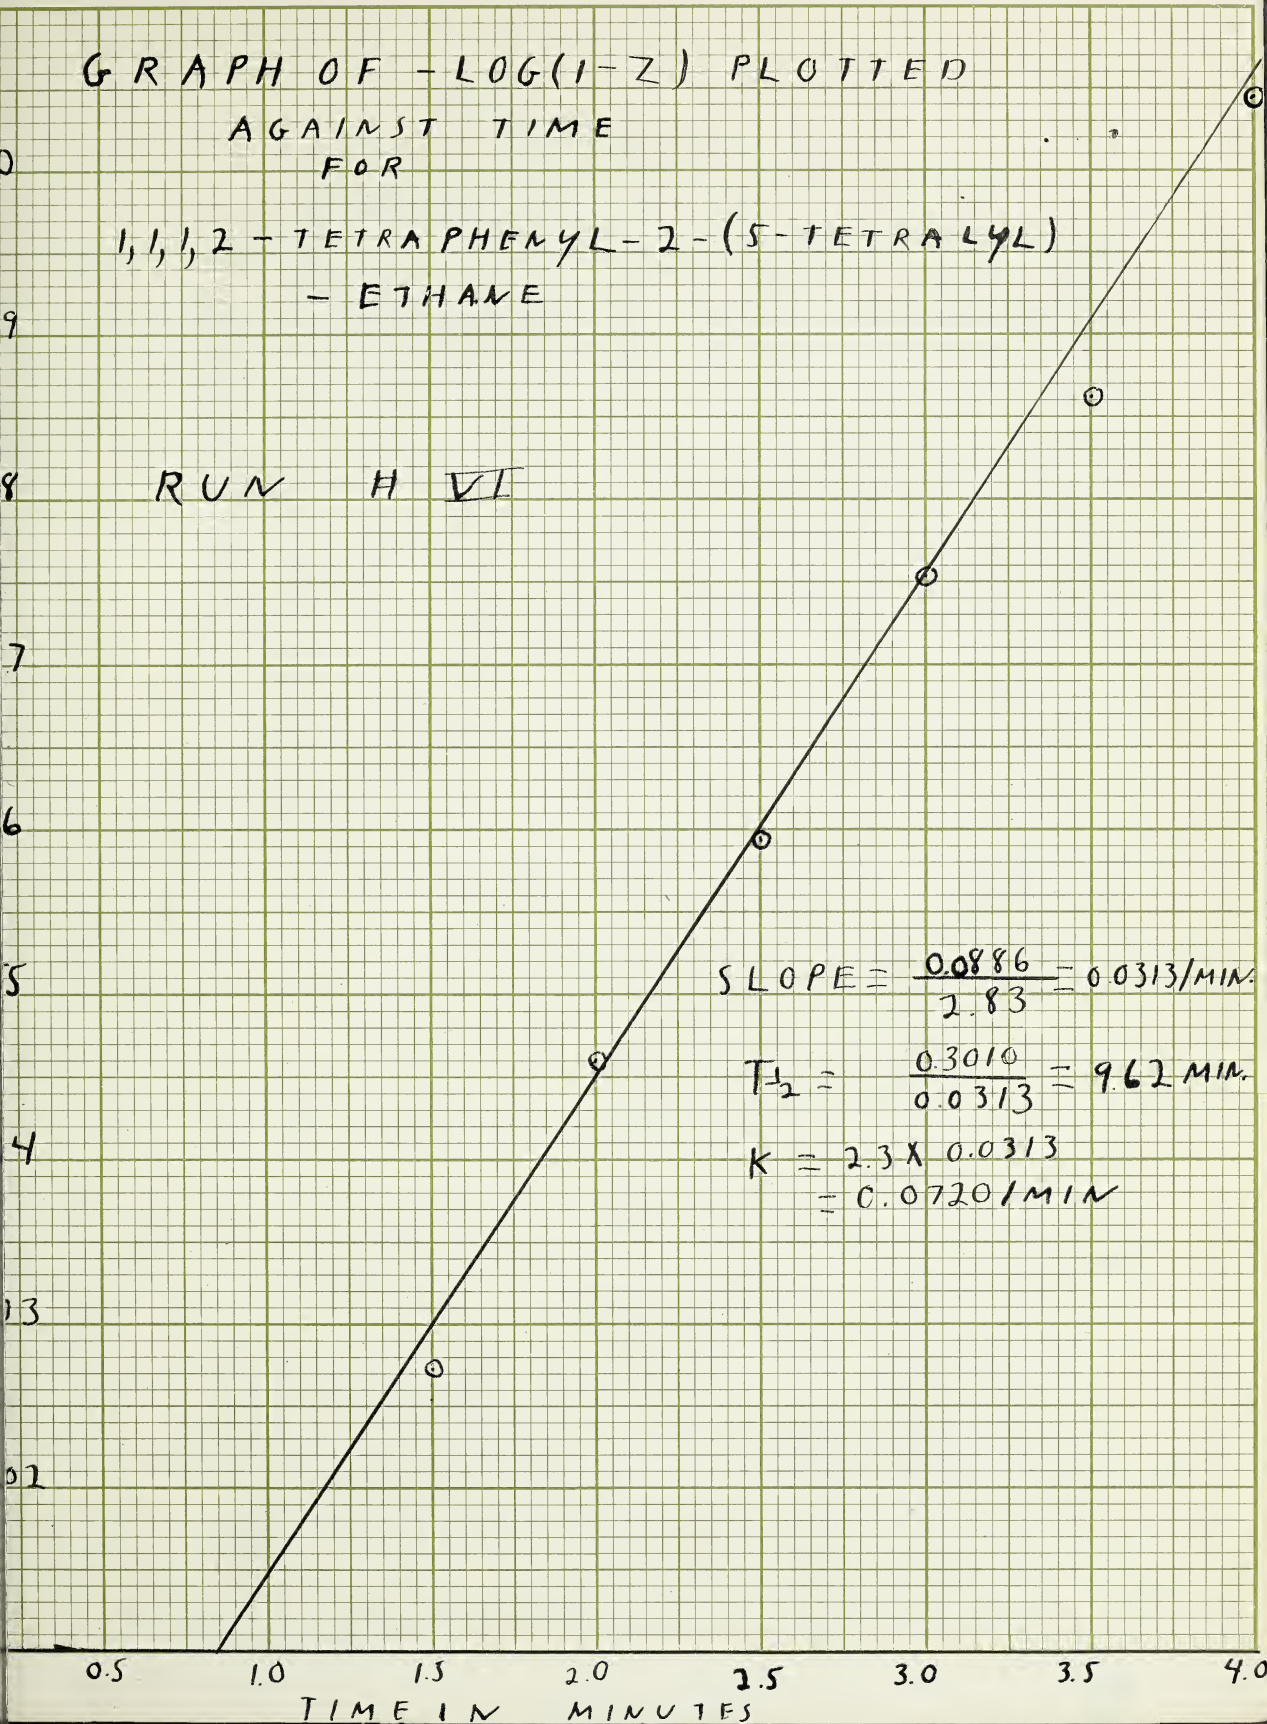 GRAPH OF -LOG(1-Z) PLOTTED
AGAINST TIME
FOR
1,1,1,2-TETRAPHENYL-2-(5-TETRALYL)
-ETHANE
0
9
8
RUN H VI
7
6
5
SLOPE = 0.0886 / 2.83 = 0.0313/MIN.
T½ = 0.3010 / 0.0313 = 9.62 MIN.
4
K = 2.3 X 0.0313
= 0.0720/MIN
13
02
0.5 1.0 1.5 2.0 2.5 3.0 3.5 4.0
TIME IN MINUTES